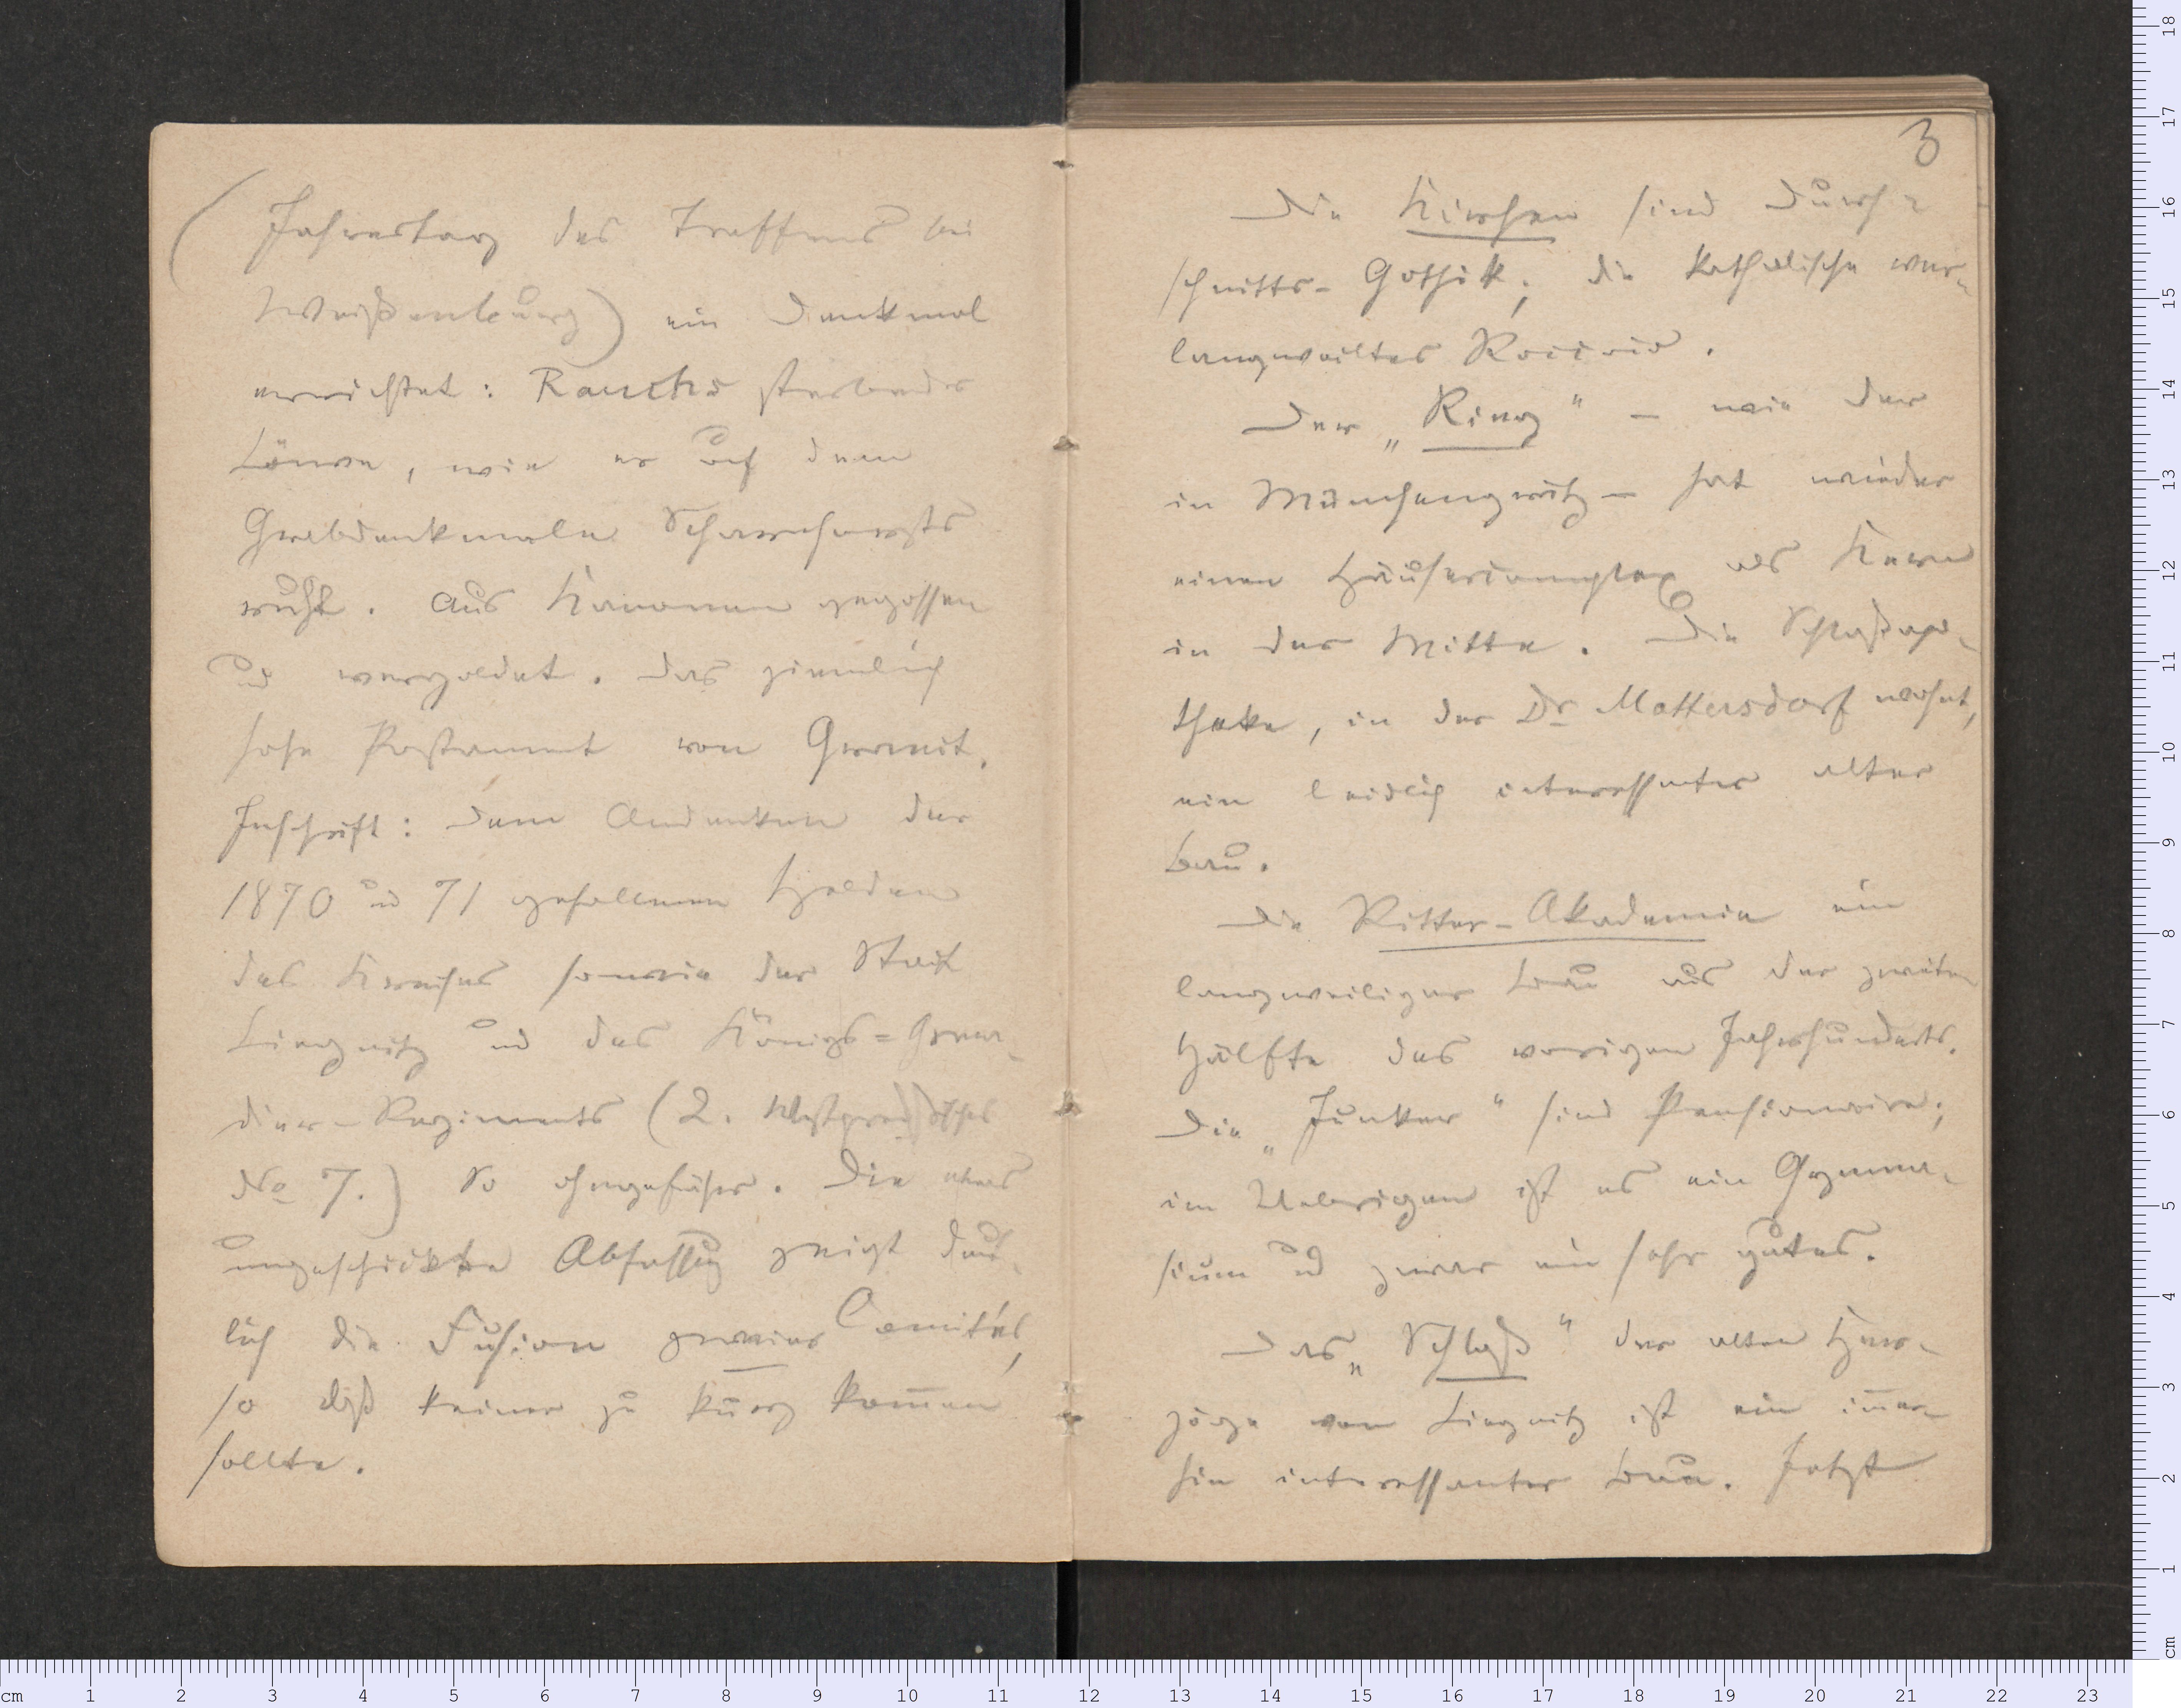 (Jahrestag des Treffens bei
Weißenburg) ein Denkmal
errichtet: Rauchs sterbender
Löwe, wie er auf dem
Grabdenkmale Scharnhorsts
ruht. Aus Kanonen gegossen
ud vergoldet. Das ziemlich
hohe Postament von Granit.
Inschrift: Dem Andenken der
1870 ud 71 gefallenen Helden
des Kreises sowie der Stadt
Liegnitz ud des Königs=Grena-
dier-Regiments (2. Westpreußisches
No 7.) So ohngefähr. Die etwas
ungeschickte Abfassung zeigt deut-
lich die Fusion zweier Comités,
so daß keiner zu kurz kom̅en
sollte.
3
Die Kirchen sind Durch-
schnitts-Gothik; die katholische ver-
langweiltes Rococo.
Der „Ring" – wie der
in Münchengrätz – hat wieder
einen Häusercomplex als Kern
in der Mitte. Die Schloßapo-
theke, in der Dr Mattersdorf wohnt,
ein leidlich interessanter alter
Bau.
Die Ritter-Akademie ein
langweiliger Bau aus der zweiten
Hälfte des vorigen Jahrhunderts.
Die „Junker" sind Pensionaire;
im Uebrigen ist es ein Gymna-
sium ud zwar ein sehr gutes.
Das „Schloß" der alten Her-
zöge von Liegnitz ist ein im̅er-
hin interessanter Bau. Jetzt